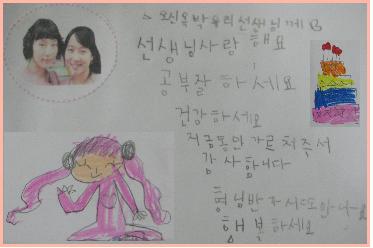 오신옥 박유리 선생님께
선생님 사랑해요
공부 잘하세요
건강하세요
지금동안 가르쳐주서
감사합니다
행복하세요